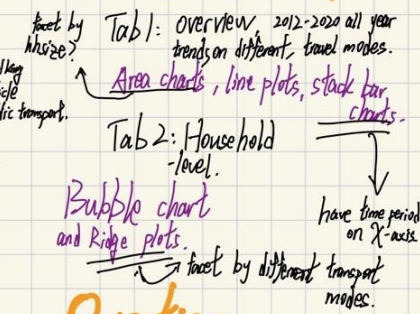 facet by
hhsize?
Tab 1: overview, 2012-2020 all year
trends on different travel modes.
Area charts, line plots, stack bar
charts.
tic transport.
Tab 2: Household
-level.
Bubble chart
and Ridge plots.
have time period
on X-axis.
facet by different transport
modes.